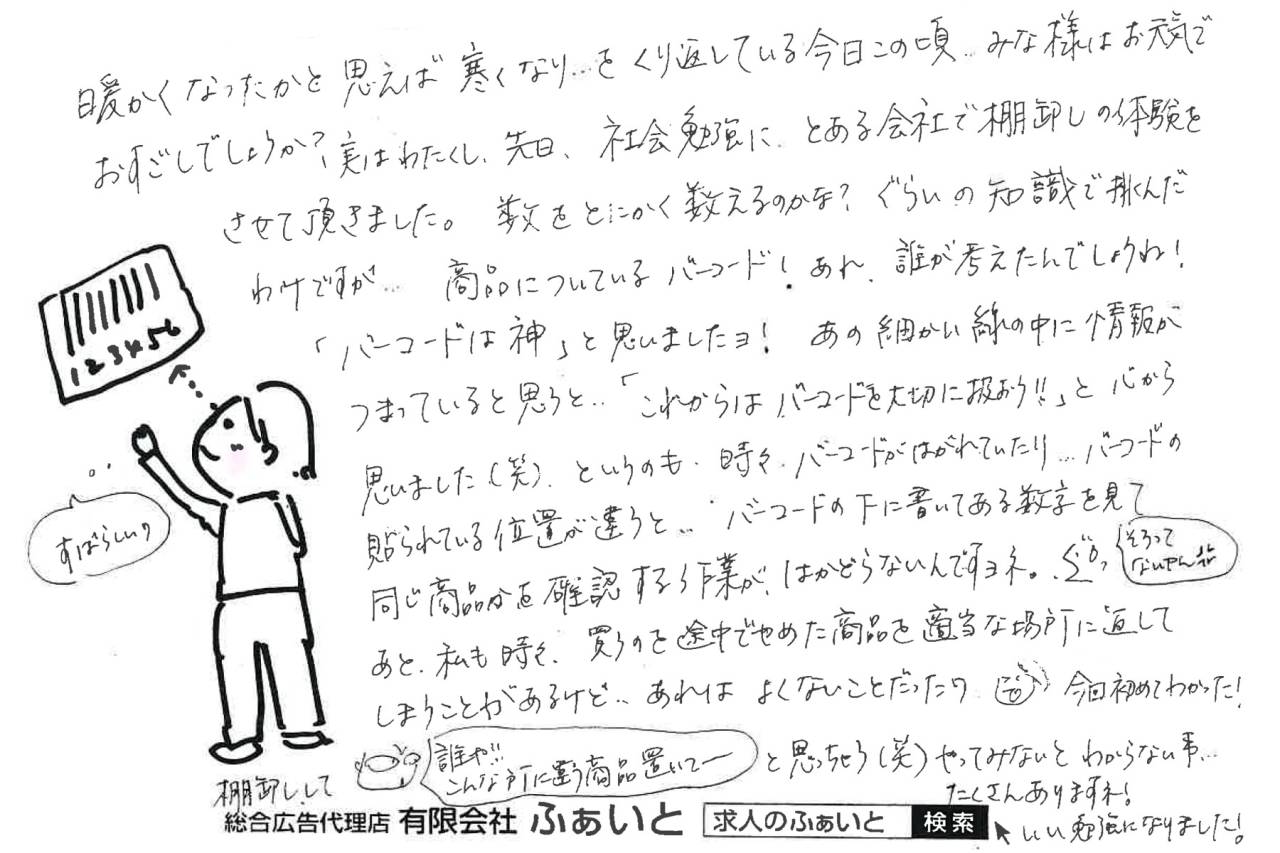 暖かくなったかと思えば寒くなり…をくり返している今日この頃…みな様はお元気で
おすごしでしょうか?実はわたくし、先日、社会勉強に、とある会社で棚卸しの体験を
させて頂きました。数をとにかく数えるのかな?ぐらいの知識で挑んだ
わけですが… 商品についているバーコード!あれ、誰が考えたんでしょうね!
「バーコードは神」と思いましたヨ!あの細かい線の中に情報が
つまっていると思うと..「これからはバーコードを大切に扱おう!!」と心から
思いました(笑)、というのも、時々、バーコードがはがれていたり…バーコードの
貼られている位置が違うと… バーコードの下に書いてある数字を見て
同じ商品かを確認する作業が、はかどらないんですヨネ。
そろって
ないやん
あと、私も時々、買うのを途中でやめた商品を適当な場所に返して
しまうことがあるけど..あれは よくないことだったワ 今回初めてわかった!
誰や!!
こんな所に違う商品置いてー
と思っちゃう(笑)やってみないとわからない事…
たくさんありますネ!
いい勉強になりました!
123456
すばらしいワ
棚卸しして
総合広告代理店 有限会社 ふぁいと 求人のふぁいと 検索